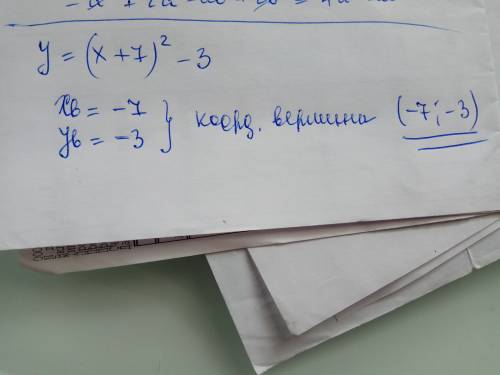 y = (x + 7)² - 3
xв = -7
yв = -3 } коорд. вершина (-7; -3)